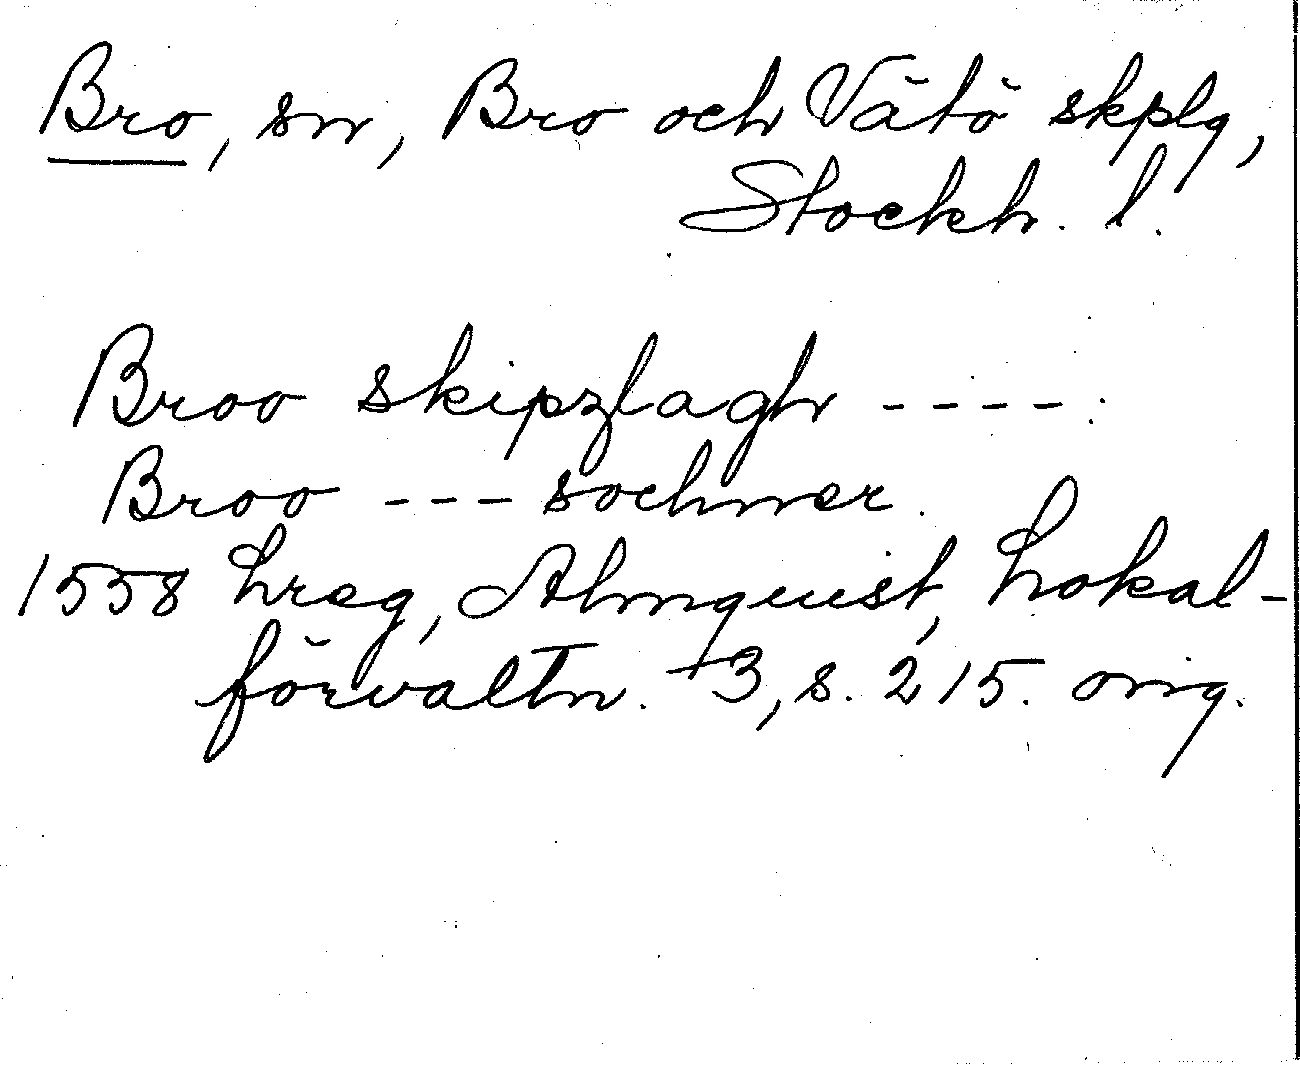 Bro, sn, Bro och Vätö skplg,
Stockh. l.
Broo skipzlaghr ----.
Broo --- sochner.
1558 hreg, Almquist, Lokal-
förvaltn. 3, s. 215. orig.